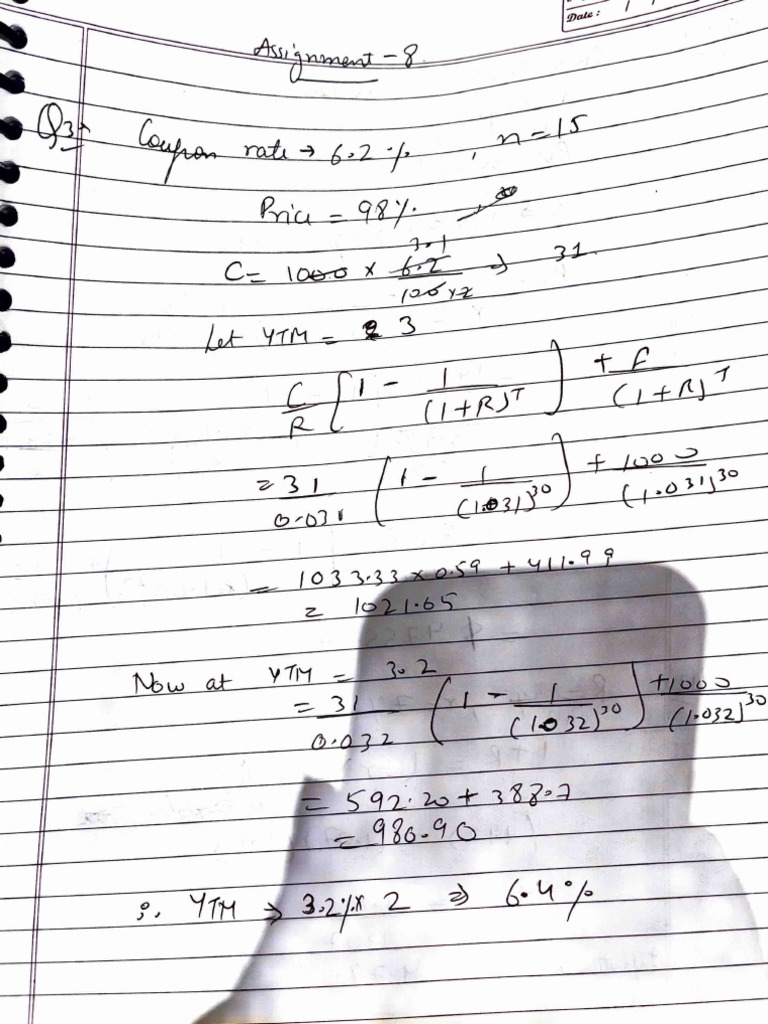 Date: / /
Assignment - 8
Q3⇒ Coupon rate → 6.2 % , n = 15
Price = 98%.
C = 1000 × 6.2/100×2 ⇒ 31
3.1
Let YTM = 3
C/R [1 - 1/(1+R)^T] + F/(1+R)^T
= 31/0.031 (1 - 1/(1.031)^30) + 1000/(1.031)^30
= 1033.33 × 0.59 + 411.99
= 1021.65
Now at YTM = 3.2
= 31/0.032 (1 - 1/(1.032)^30) + 1000/(1.032)^30
= 592.20 + 388.7
= 980.90
∴ YTM ⇒ 3.2% × 2 ⇒ 6.4%